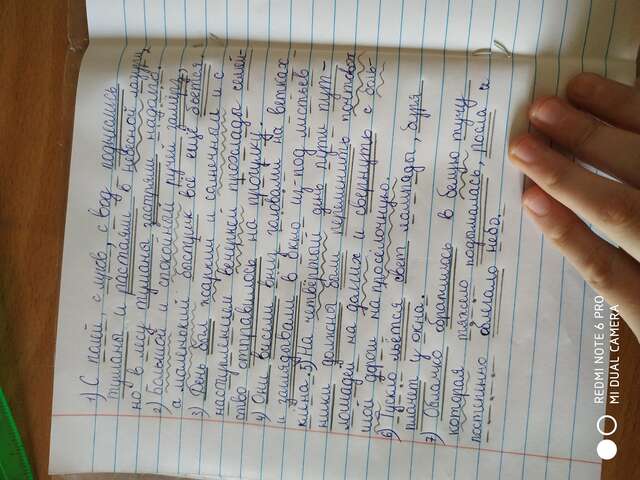 1) С полей, с лугов, с вод поднялись
туманы и растаяли в небесной лазури,
но в лесу туманы застряли надолго.
2) Большой и спокойный ручей замёрз,
а маленький быстрик всё ещё бьётся.
3) День был жарким и солнечный и с
наступлением вечерней прохлады семей-
ство отправилось на прогулку.
4) Они висели вниз головами на ветках
и заглядывали в окно из-под листьев
клёна. 5) На четвёртый день пути пут-
ники должны были переменить почтовых
лошадей на долгих и свернуть с боль-
шой дороги на просёлочную.
6) Тускло льётся свет лампады, буря
плачет у окна.
7) Облачко обратилось в белую тучу
которая тяжело подымалась, росла и
постепенно облегало небо.
REDMI NOTE 6 PRO
MI DUAL CAMERA